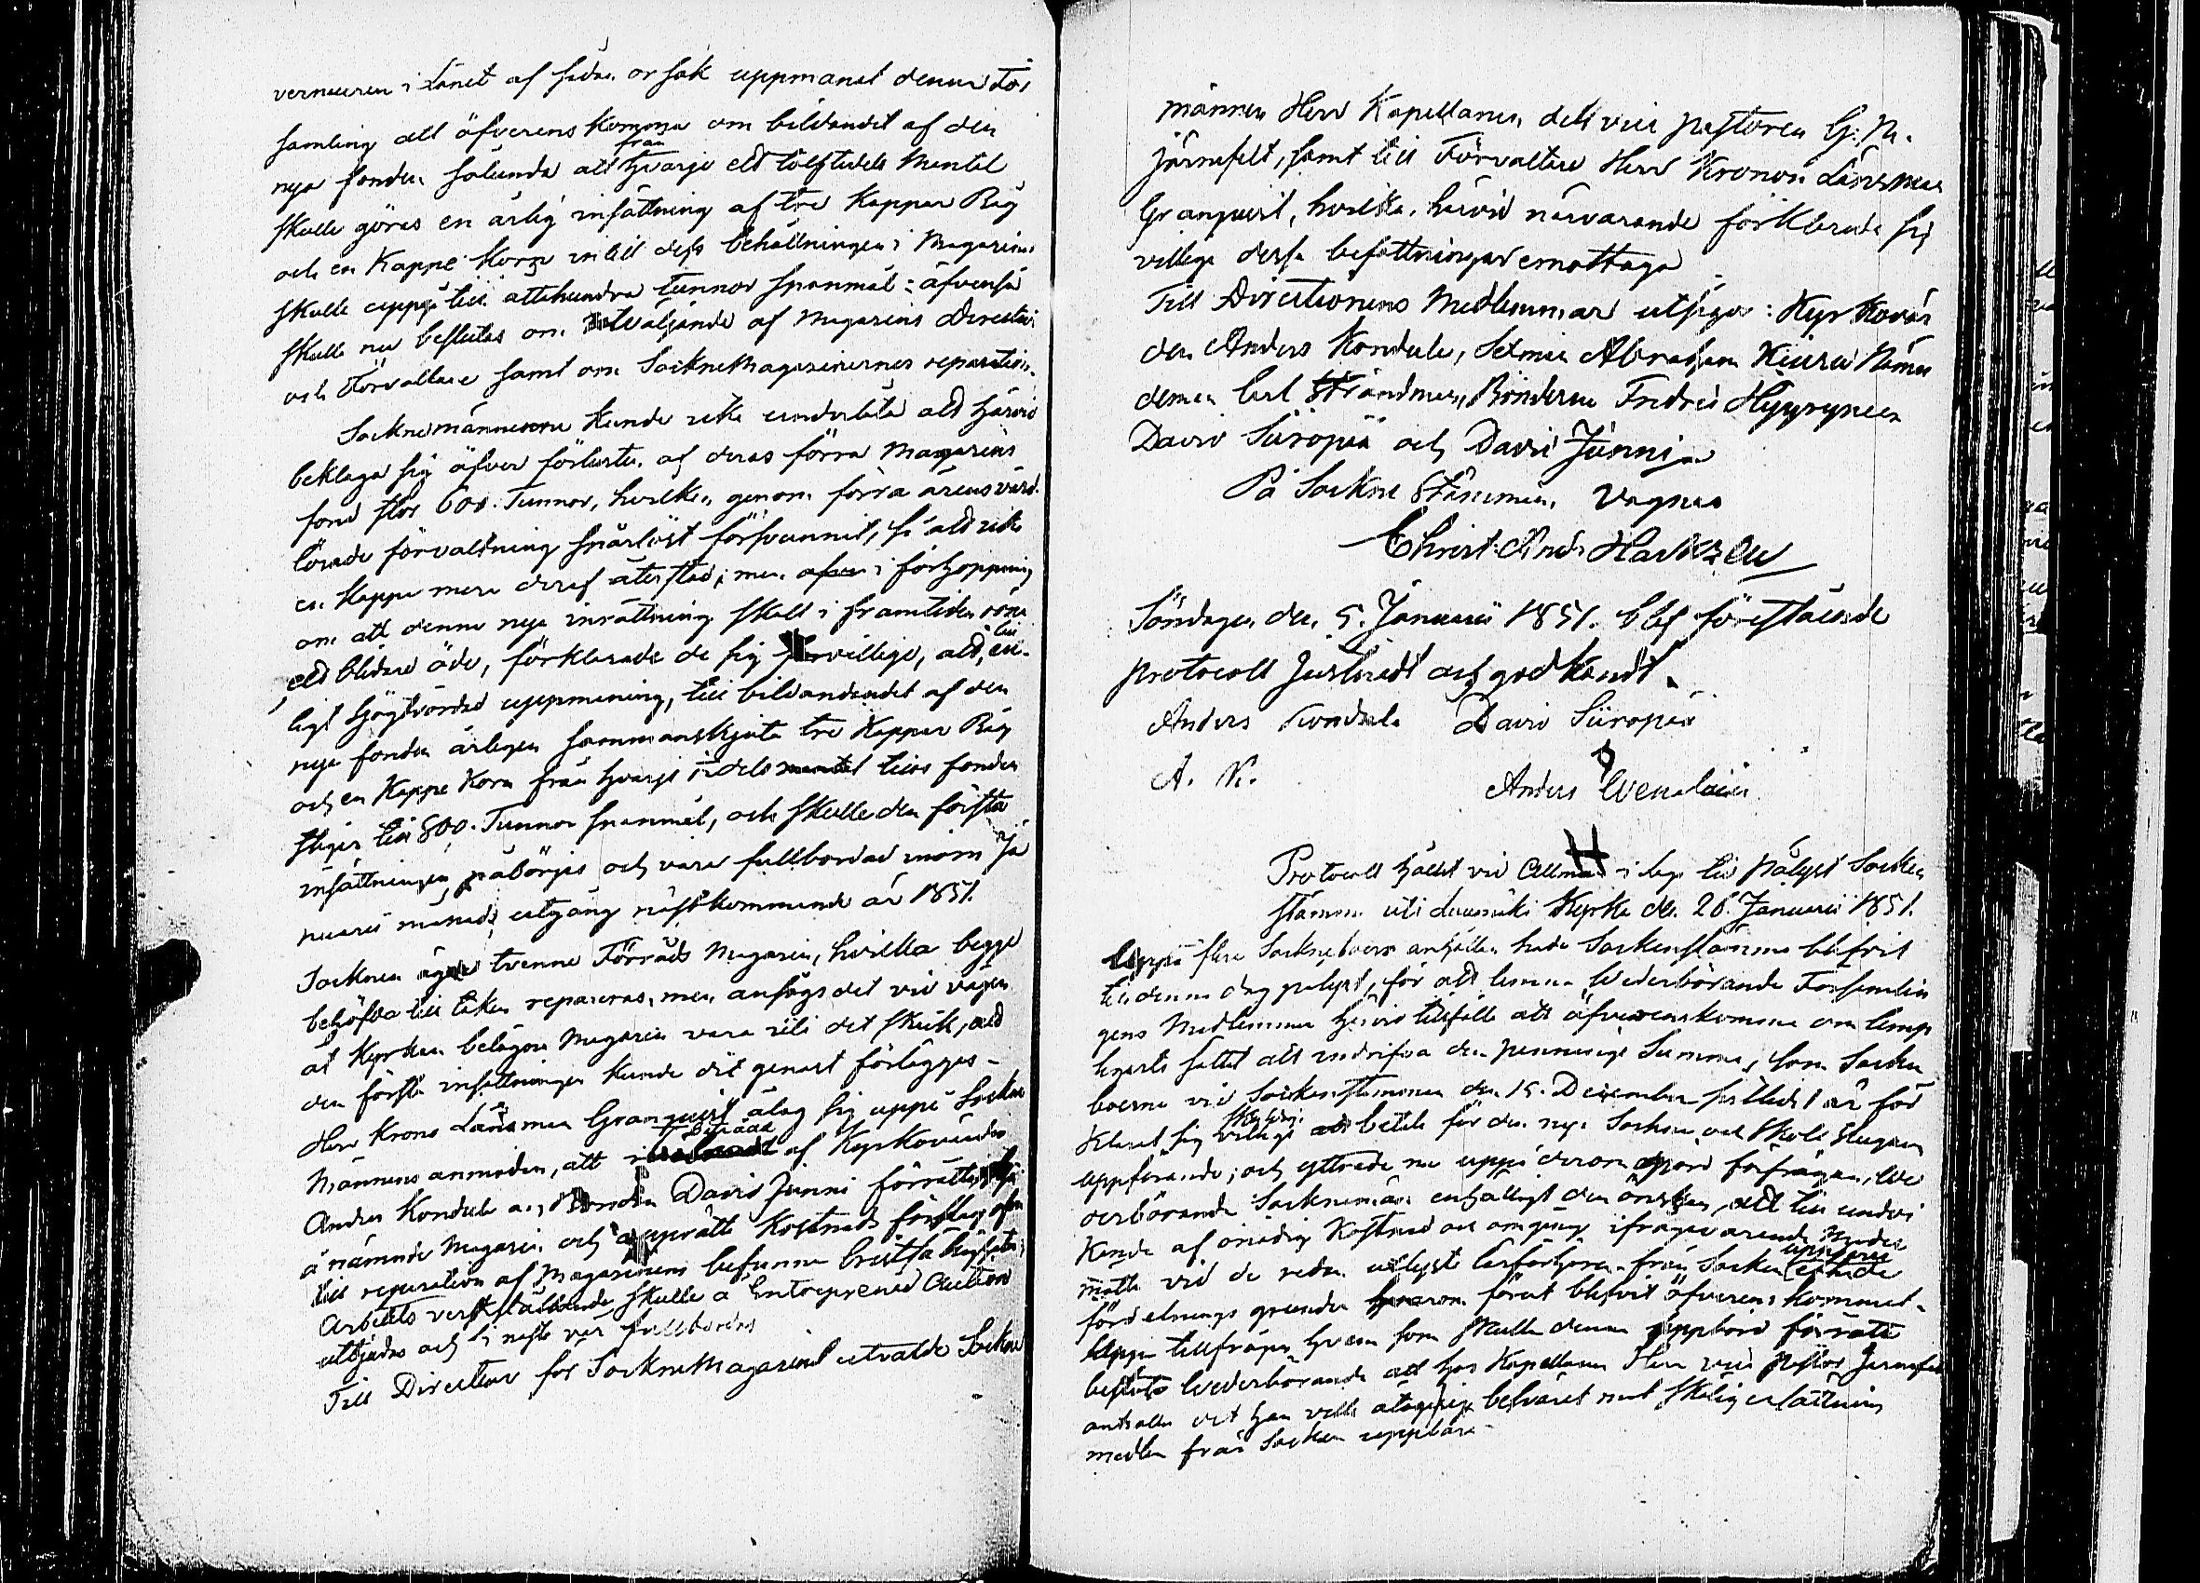 verneuren i Länet af sådan orsak uppmanat denna För
samling att öfverens komma om bildandet af den
från
nya fonden sålunda att hvarje ett tolftedels Mantal
skulle göras en årlig insättning af tre Kappar Råg
och en Kappe Korn intill dess behållningen i Magasinet
skulle uppgå till åttahundra tunnor spanmål; äfvenså
skulle nu beslutas om utväljande af Magasins Direction
och Förvaltare samt om SockneMagasinernes reparation.
Socknemännerne kunde icke underlåta att härvid
beklaga sig öfver förlusten af deras förra Magasins
fond stor 600. Tunnor, hvilken genom förra årens vård
lösade förvaltning spårlöst försvunnit, så att icke
en Kappe mera deraf återstod; men i förhoppning
om att denna nya inrättning skall i framtiden röna
ett blidare öde, förklarade de sig villige, att, en
ligt högvördad uppmaning, till bildandet af den
nya fonden årligen sammanskjuta tre Kappar Råg
och en Kappe Korn från hvarje 12dels mantal tills fonden
stiger till 800. Tunnor spanmål, och skulle den första
insättningen påbörjas och vara fullbordad inom Ja
nuarii månads utgång nästkommande år 1851.
Socknen äger tvenne Förråds Magasin, hvilka begge
behöfva till taken repareras, men ansågs det vid vägen
åt Kyrkan belägna Magasin vara uti det skick, att
den första insättningen kunde dit genast förläggas.
Herr Krono Länsman Granqvist åtog sig uppå Sockne
Männens anmodan, att i biträde af Kyrkovärden
Anders Kondula och Bonden David Junni förrätta syn
å nämnde Magasin och upprätta Kostnads förslag
till reparation af Magasinens befunna bristfälligheter;
Arbetets verkställande skulle å Entreprenad Auction
utbjudas och i nästa vår fullbordas
Till Direction för SockneMagasinet utvalde Sockne
männen Herr Kapellanen och vice pastoren G: M.
Järnefelt, samt till Förvaltare Herr Krono Länsman
Granqvist, hvilka, härvid närvarande förklarade sig
villige dessa befattningar emottaga
Till Directionens Medlemmar utsågos: Kyrkovär
den Anders Kondula, Sexman Abraham Kiuru Nämn
deman Carl Strandman, Bönderne Fredric Hyyrynen
David Süropää och David Junni
På Sockne Stämmans vagnar
Christ: And: Harkzell
Söndagen den 5. Januarii 1851. blef förestående
protocoll justeradt och godkändt.
Anders Kondula David Süropää
A. K.
Anders Wenäläin
Protocoll hållet vid Allmän i laga tid pålyst Socken
stämma uti Kyrka den 26. Januarii 1851.
Uppå flere Sockneboers anhållan hade Sockenstämma blifvit
till denna dag pålyst, för att lemna Wederbörande Församlin
gens Medlemmar härvid tillfälle att öfverenskomma om lämp
ligaste sättet att indrifva den penninge Summa, som Socken
boerne vid Sockenstämman den 15. December sistledit år för
skyldige
klarat sig villige att betala för den nya Socken och Skole Stugans
uppförande; och yttrade nu uppå derom gjord förfrågan, We
derbörande Socknemän enhälligt den önskan, att till undvi
kande af onödig Kostnad och omgång ifrågavarande Medel
uppbäras
måtte vid de redan utlyste Läsförhören från Socken enligt de
fördelnings grunder hvarom förut blifvit öfverens kommet.
Uppå tillfrågan hvem som skulle denna uppbörd förrätta
beslöto Wederbörande att hos Kapellanen Herr vice pastor Järnefelt
anhålla det han ville åtaga sig besväret mot skälig ersättning
medlen från Socken uppbära